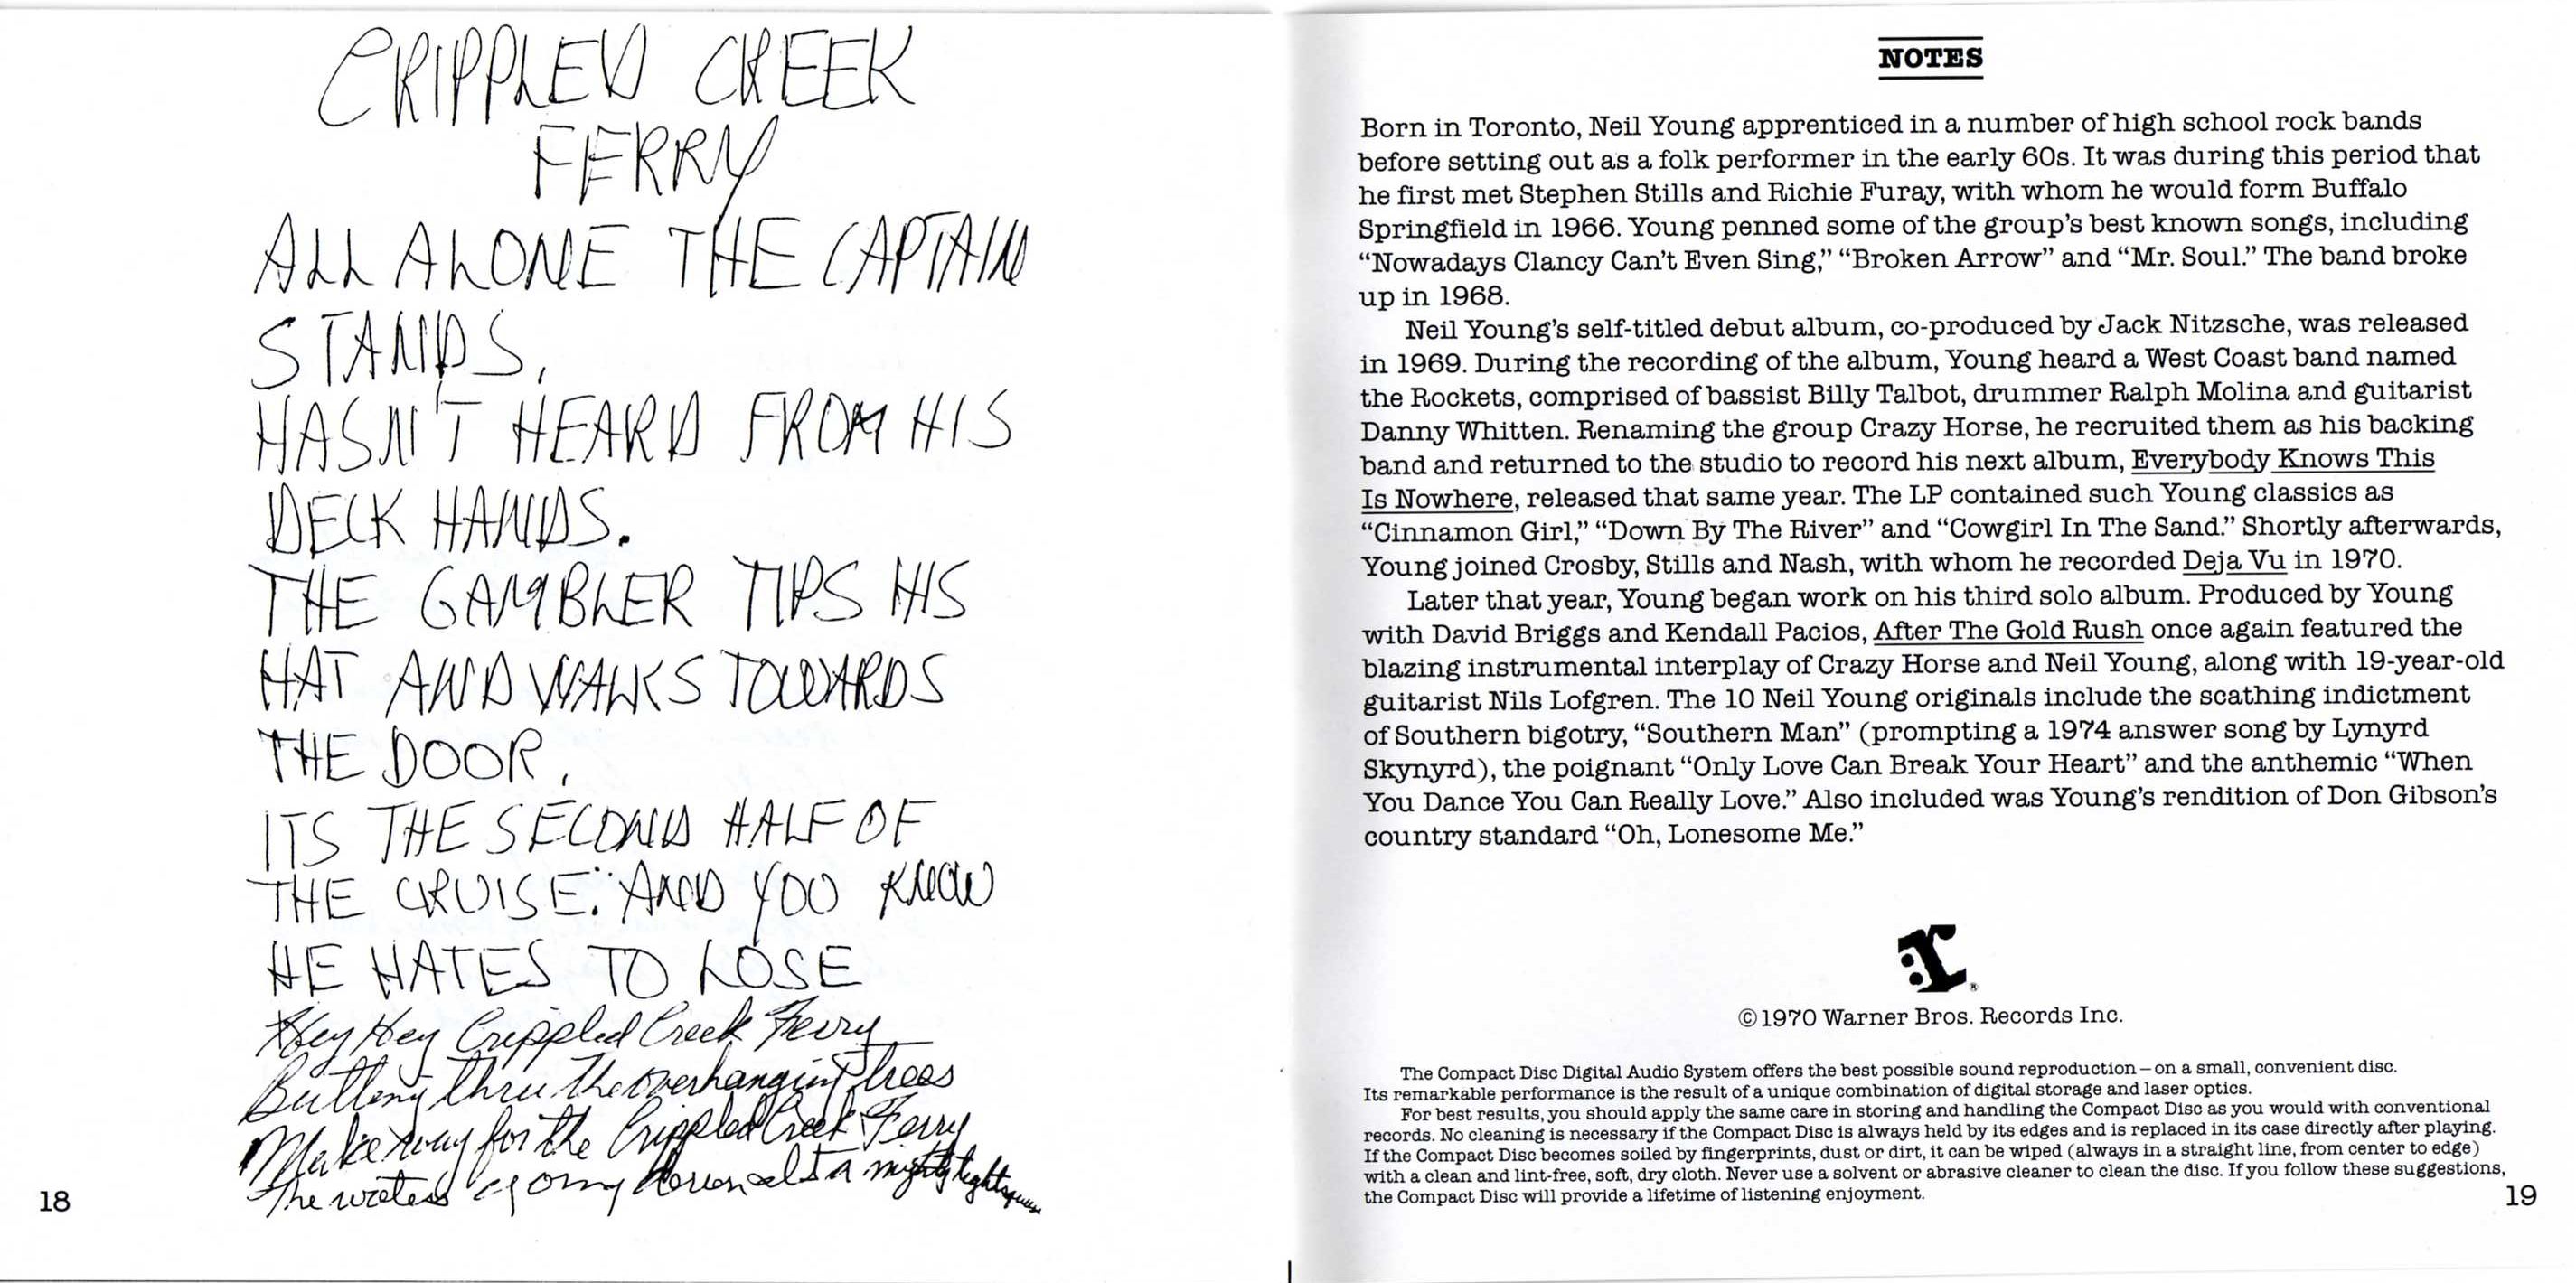 CRIPPLED CREEK
FERRY
ALL ALONE THE CAPTAIN
STANDS,
HASN'T HEARD FROM HIS
DECK HANDS.
THE GAMBLER TIPS HIS
HAT AND WALKS TOWARDS
THE DOOR,
ITS THE SECOND HALF OF
THE CRUISE. AND YOU KNOW
HE HATES TO LOSE
Hey Hey Crippled Creek Ferry
thru the overhanging trees
Make way for the Crippled Creek Ferry
The water going down a mighty tight squeeze
18
NOTES
Born in Toronto, Neil Young apprenticed in a number of high school rock bands
before setting out as a folk performer in the early 60s. It was during this period that
he first met Stephen Stills and Richie Furay, with whom he would form Buffalo
Springfield in 1966. Young penned some of the group's best known songs, including
“Nowadays Clancy Can't Even Sing,” “Broken Arrow” and “Mr. Soul.” The band broke
up in 1968.
Neil Young's self-titled debut album, co-produced by Jack Nitzsche, was released
in 1969. During the recording of the album, Young heard a West Coast band named
the Rockets, comprised of bassist Billy Talbot, drummer Ralph Molina and guitarist
Danny Whitten. Renaming the group Crazy Horse, he recruited them as his backing
band and returned to the studio to record his next album, Everybody Knows This
Is Nowhere, released that same year. The LP contained such Young classics as
“Cinnamon Girl,” “Down By The River” and “Cowgirl In The Sand.” Shortly afterwards,
Young joined Crosby, Stills and Nash, with whom he recorded Deja Vu in 1970.
Later that year, Young began work on his third solo album. Produced by Young
with David Briggs and Kendall Pacios, After The Gold Rush once again featured the
blazing instrumental interplay of Crazy Horse and Neil Young, along with 19-year-old
guitarist Nils Lofgren. The 10 Neil Young originals include the scathing indictment
of Southern bigotry, “Southern Man” (prompting a 1974 answer song by Lynyrd
Skynyrd), the poignant “Only Love Can Break Your Heart” and the anthemic “When
You Dance You Can Really Love.” Also included was Young's rendition of Don Gibson's
country standard “Oh, Lonesome Me.”
:r®
©1970 Warner Bros. Records Inc.
The Compact Disc Digital Audio System offers the best possible sound reproduction – on a small, convenient disc.
Its remarkable performance is the result of a unique combination of digital storage and laser optics.
For best results, you should apply the same care in storing and handling the Compact Disc as you would with conventional
records. No cleaning is necessary if the Compact Disc is always held by its edges and is replaced in its case directly after playing.
If the Compact Disc becomes soiled by fingerprints, dust or dirt, it can be wiped (always in a straight line, from center to edge)
with a clean and lint-free, soft, dry cloth. Never use a solvent or abrasive cleaner to clean the disc. If you follow these suggestions,
the Compact Disc will provide a lifetime of listening enjoyment.
19